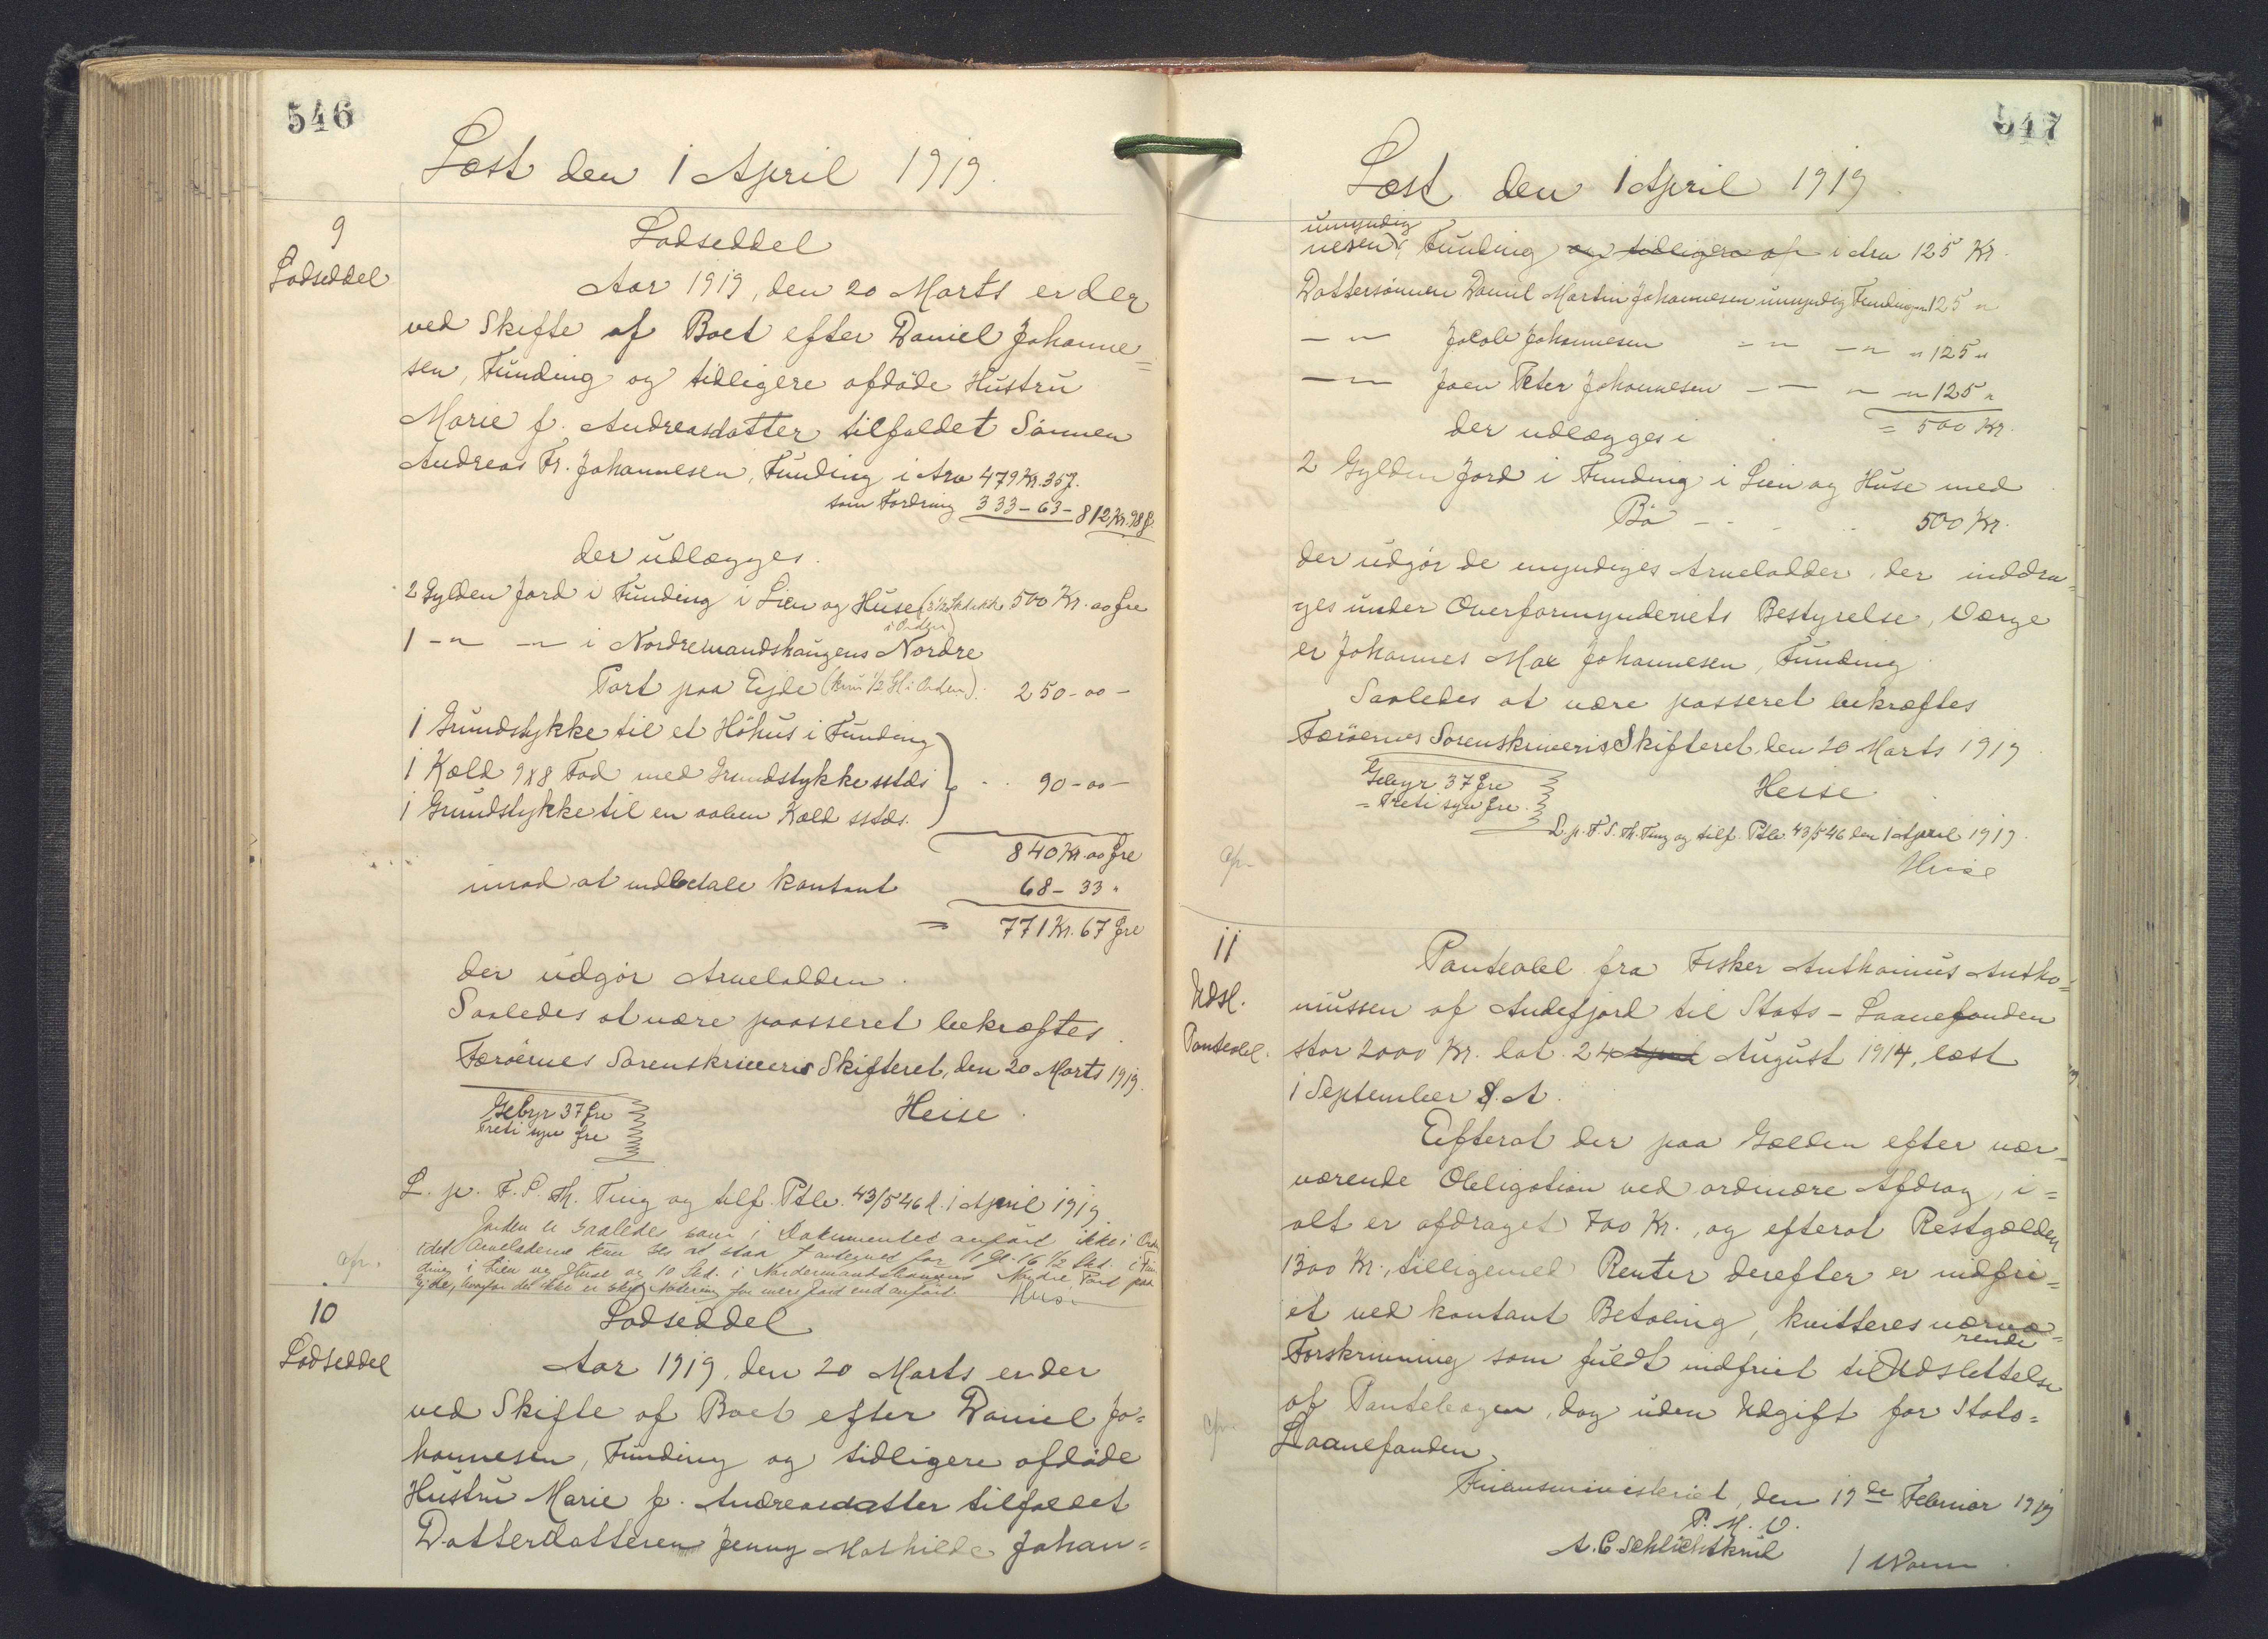 546
Læst den 1 April 1919.
9
Lodseddel
Lodseddel
Aar 1919, den 20 Marts er der
ved Skifte af Boet efter Daniel Johanne=
sen, Funding og tidligere afdöde Hustru
Marie f. Andreasdatter tilfaldet Sönnen
Andreas Fr. Johannesen, Funding i Arv 479 Kr. 35 f.
som Fordring 333 - 63 - 812 Kr. 98 f.
der udlægges.
2 Gylden Jord i Funding i Lien og Huse 500 Kr. 00 Øre
i Orden)
1 - " - " - i Nordremandshaugens Nordre
Part paa Ejde (kun 1/2 Gl i Orden). 250 - 00 -
1 Grundstykke til et Höhus i Funding
1 Kæld 9x8 Fod med Grundstykke sstds
90 - 00 -
1 Grundstykke til en aaben Kæld sstds.
840 Kr. 00 Øre
imod at indbetale kontant 68 - 33 "
= 771 Kr. 67 Øre
der udgör Arvelodden.
Saaledes at være paasseret bekræftes.
Færöernes Sorenskriveris Skifteret, den 20 Marts 1919.
Gebyr 37 Øre
Treti syv Øre
Heise.
L. p. F. S. Th. Ting og tilf. Ptb. 43/546 d. 1 April 1919
Jorden er saaledes som i Dokumentet anfört ikke i Orden
idet Arveladerne kun ses at staa antegnet for 1 Gl. 16 1/2 Skd. i Fun
ding i Lien og Huse og 10 Skd. i Nordremandshaugens Nordre Part paa
Ejde, hvorfor det ikke er sket Notering for mere Jord end anfört.
Heise
10
Lodseddel
Lodseddel
Aar 1919, den 20 Marts er der
ved Skifte af Boet efter Daniel Jo=
hannesen, Funding og tidligere afdöde
Hustru Marie f. Andreasdatter tilfaldet
Datterdatteren Jenny Mathilde Johan=
547
Læst den 1 April 1919.
umyndig
nesen, Funding og tidligere af i Arv 125 Kr.
Dattersönnen Daniel Martin Johannesen umyndig Funding 125 "
- " - Jacob Johannesen - " - - " - " 125 "
- " - Joen Peter Johannesen - " - - " - " 125 "
= 500 Kr.
der udlægges i
2 Gylden Jord i Funding i Lien og Huse med
Bö - - - 500 Kr.
der udgör de umyndiges Arvelodder, der inddra=
ges under Overformynderiets Bestyrelse, Værge
er Johannes Max Johannesen, Funding.
Saaledes at være passeret bekræftes
Færöernes Sorenskriveris Skifteret, den 20 Marts 1919.
Gebyr 37 Øre
= Treti syv Øre.
Heise.
L. p. F. S. Th. Ting og tilf. Ptb. 43/546 den 1 April 1919.
Heise
11
Udsl.
Panteobl.
Panteobl. fra Fisker Anthonius Antho=
niussen af Andefjord til Stats-Laanefonden
stor 2000 Kr. dat. 24 April August 1914, læst
1 September s. A.
Efterat der paa Gælden efter nær=
værende Obligation ved ordinære Afdrag, i=
alt er afdraget 700 Kr., og efterat Restgælden
1300 Kr., tilligemed Renter derefter er indfri=
et ved kontant Betaling, kvitteres nærvæ=
rende
Forskrivning som fuldt indfriet til Udslettelse
af Pantebogen, dog uden Udgift for Stats=
Laanefonden.
Finansministeriet, den 19de Februar 1919
P. M. V.
A. C. Schlichtkrul
/ Worm